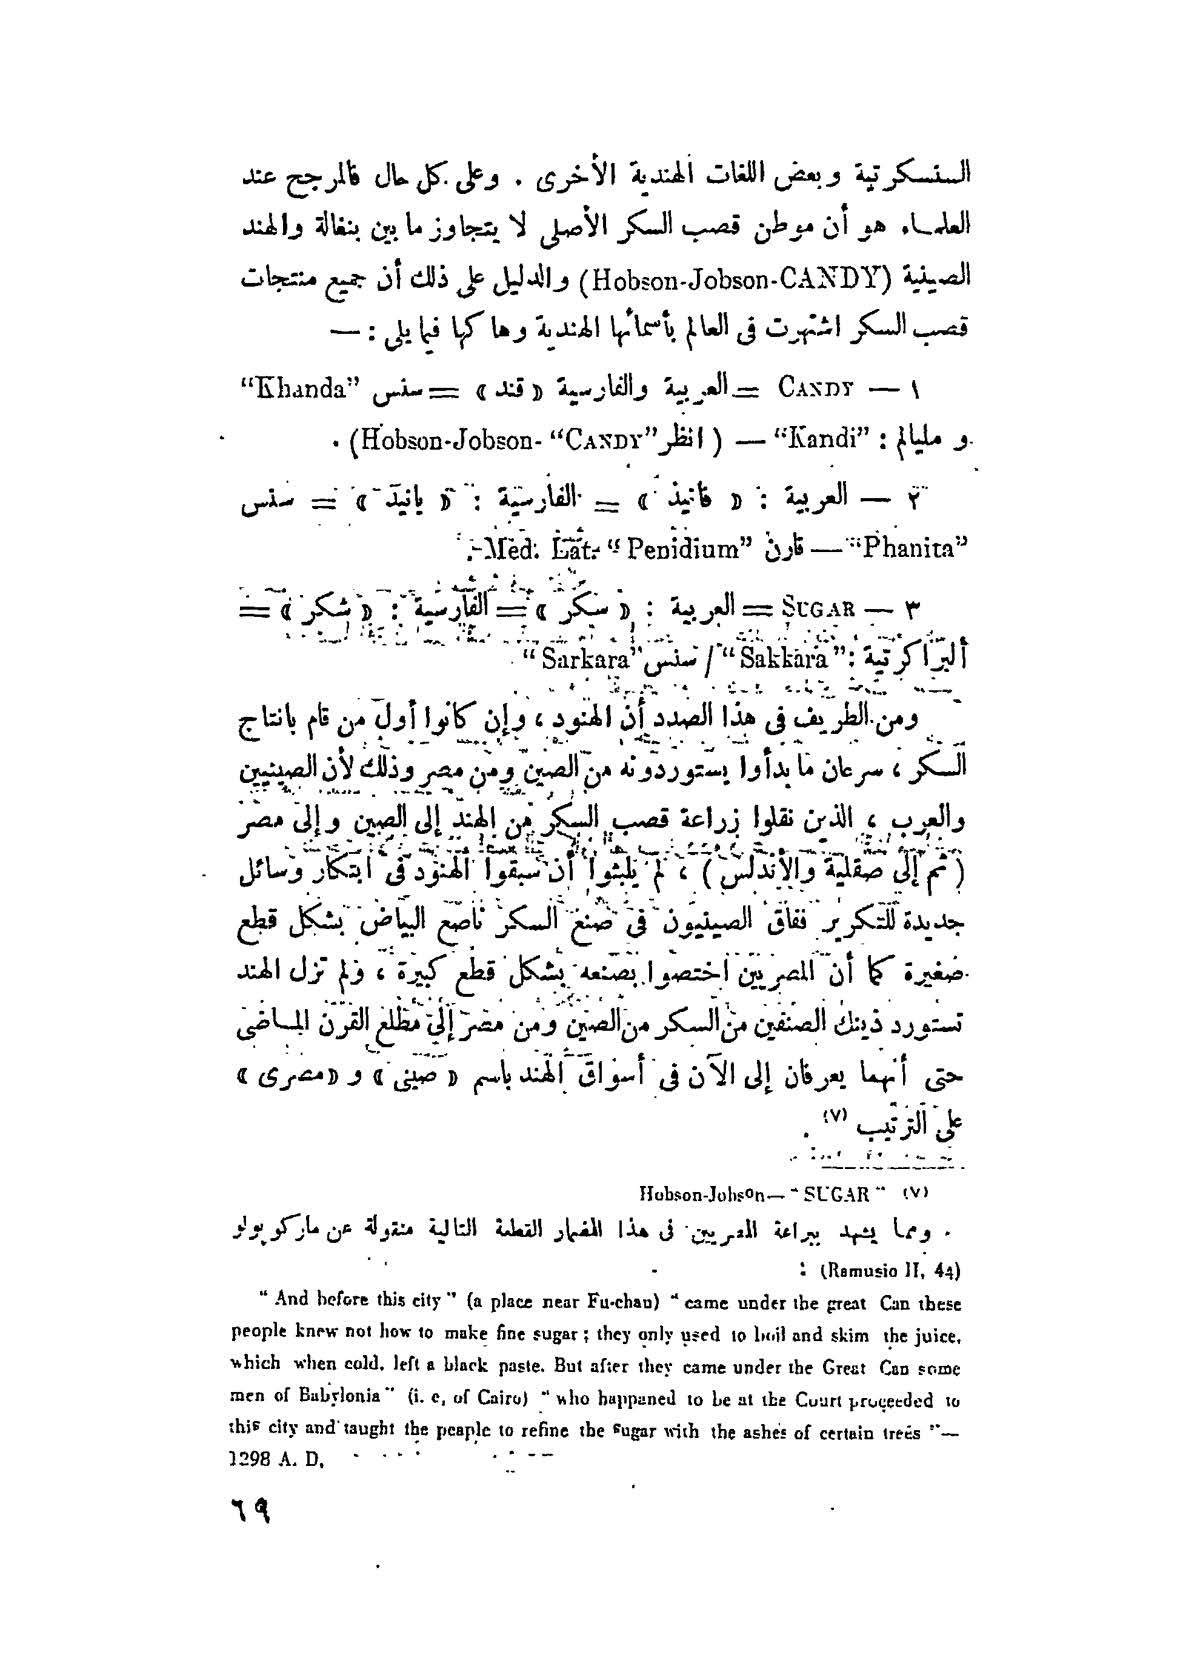 السنسكرتية وبعض اللغات الهندية الأخرى . وعلى كل حال فالمرجح عند
العلماء هو أن موطن قصب السكر الأصلى لا يتجاوز ما بين بنغالة والهند
الصينية (Hobson-Jobson-CANDY) والدليل على ذلك أن جميع منتجات
قصب السكر اشتهرت فى العالم بأسمائها الهندية وها كها فيما يلى : —
١ — CANDY = العربية والفارسية « قند » = سنس “Khanda”
و مليالم : “Kandi” — ( انظر “CANDY” -Hobson-Jobson) .
٢ — العربية : « فانيذ » = الفارسية : « پانيد » = سنس
“Phanita” — قارن “Penidium” Med. Lat.
٣ — SUGAR = العربية : « سكر » = الفارسية : « شكر » =
البراكرتية : “Sakkara” / سنس “Sarkara”
ومن الطريف فى هذا الصدد أن الهنود ، وإن كانوا أول من قام بانتاج
السكر ، سرعان ما بدأوا يستوردونه من الصين ومن مصر وذلك لأن الصينيين
والعرب ، الذين نقلوا زراعة قصب السكر من الهند إلى الصين وإلى مصر
( ثم إلى صقلية والأندلس ) ، لم يلبثوا أن سبقوا الهنود فى ابتكار وسائل
جديدة للتكرير ففاق الصينيون فى صنع السكر ناصع البياض بشكل قطع
صغيرة كما أن المصريين اختصوا بصنعه بشكل قطع كبيرة ، ولم تزل الهند
تستورد ذينك الصنفين من السكر من الصين ومن مصر إلى مطلع القرن الماضى
حتى أنهما يعرفان إلى الآن فى أسواق الهند باسم « صينى » و « مصرى »
على الترتيب (٧) .
(٧) Hobson-Jobson— “ SUGAR ”
. ومما يشهد ببراعة المصريين فى هذا المضمار القطعة التالية منقولة عن ماركو پولو
(Ramusio II, 44) :
“ And before this city ” (a place near Fu-chau) “ came under the great Can these
people knew not how to make fine sugar ; they only used to boil and skim the juice,
which when cold, left a black paste. But after they came under the Great Can some
men of Babylonia ” (i. e, of Cairo) “ who happaned to be at the Court proceeded to
this city and taught the peaple to refine the sugar with the ashes of certain trees ”—
1298 A. D.
٦٩